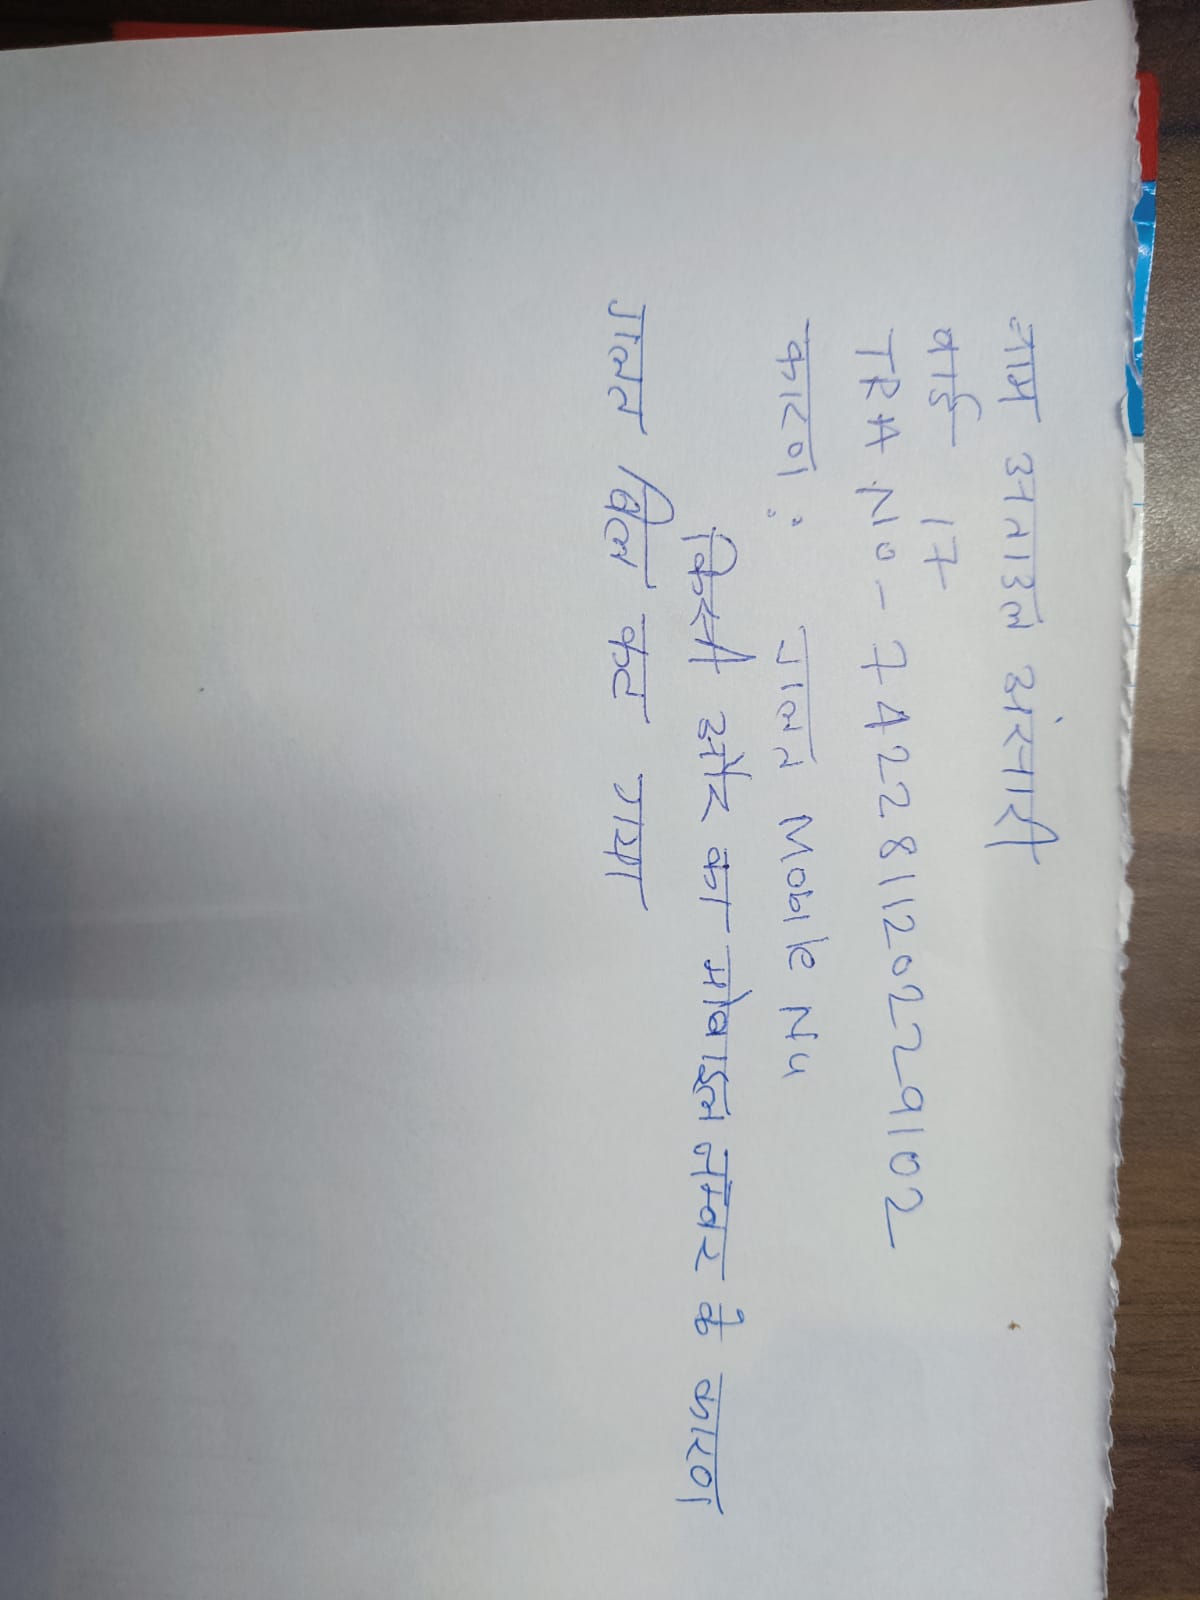 नाम अताउल अंसारी
वार्ड 17
TRA NO - 7422811202229102
कारण : गलत Mobile Nu
किसी और का मोबाइल नम्बर के कारण
गलत बिल कट गया